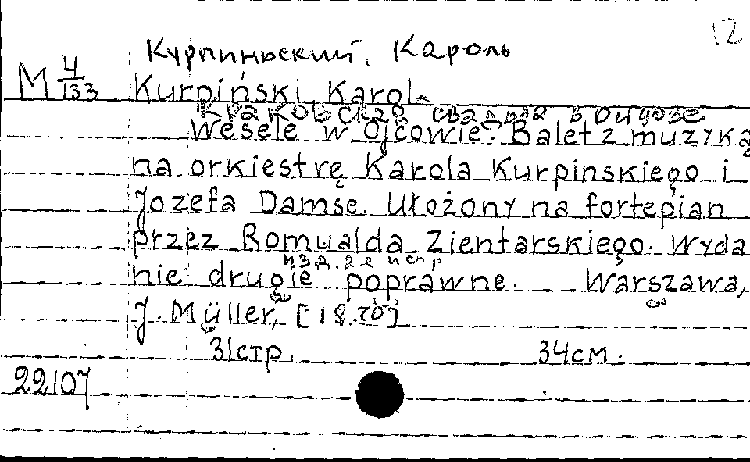 12
Курпиньский, Кароль
М 4/133 Kurpiński Karol.
Краковская свадьба в Ойцове
Wesele w Ojcowie. Balet z muzyką
na orkiestrę Karola Kurpinskiego i
Jozefa Damse. Ułożony na fortepian
przez Romualda Zientarskiego. Wyda
изд. 2е испр
nie drugie poprawne. Warszawa,
J. Müller, [18
31стр. 34см.
22107